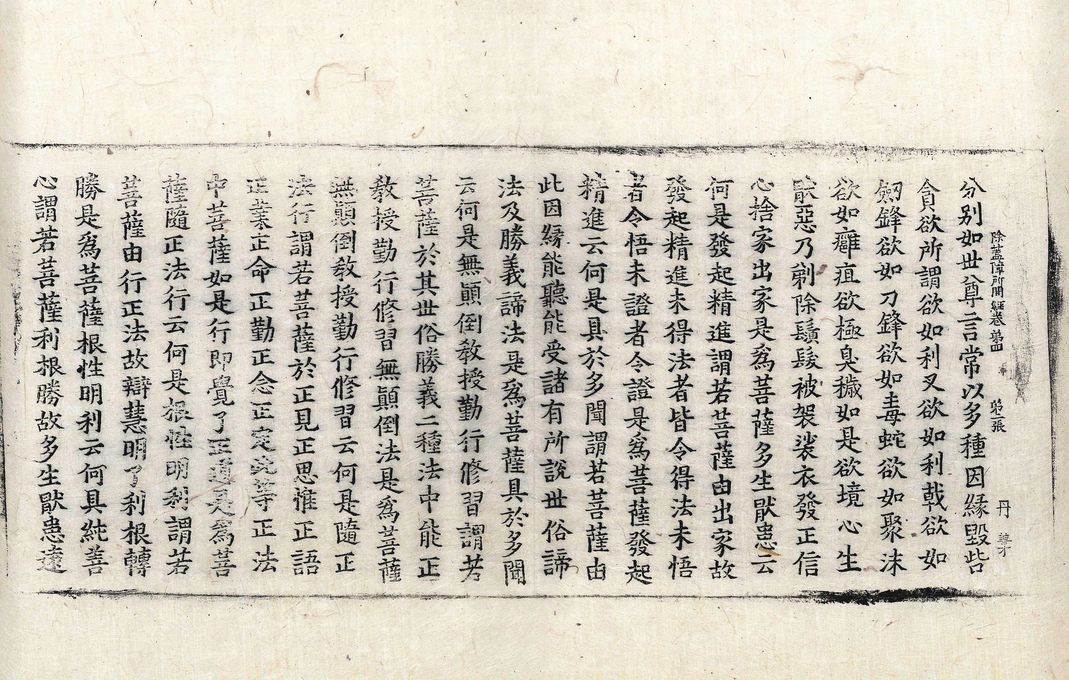 除蓋障所問經卷第四 第二張 丹
分别如世尊言常以多種因緣毀呰
貪欲所謂欲如利叉欲如利戟欲如
劒鋒欲如刀鋒欲如毒蛇欲如聚沫
欲如癰疽欲極臭穢如是欲境心生
猒惡乃剃除鬚髮被袈裟衣發正信
心捨家出家是爲菩薩多生猒患云
何是發起精進謂若菩薩由出家故
發起精進未得法者皆令得法未悟
者令悟未證者令證是爲菩薩發起
精進云何是具於多聞謂若菩薩由
此因緣能聽能受諸有所說世俗諦
法及勝義諦法是爲菩薩具於多聞
云何是無顚倒敎授勤行修習謂若
菩薩於其世俗勝義二種法中能正
敎授勤行修習無顚倒法是爲菩薩
無顚倒敎授勤行修習云何是隨正
法行謂若菩薩於正見正思惟正語
正業正命正勤正念正定此等正法
中菩薩如是行即覺了正道是爲菩
薩隨正法行云何是根性明利謂若
菩薩由行正法故辯慧明了利根轉
勝是爲菩薩根性明利云何具純善
心謂若菩薩利根勝故多生猒患遠